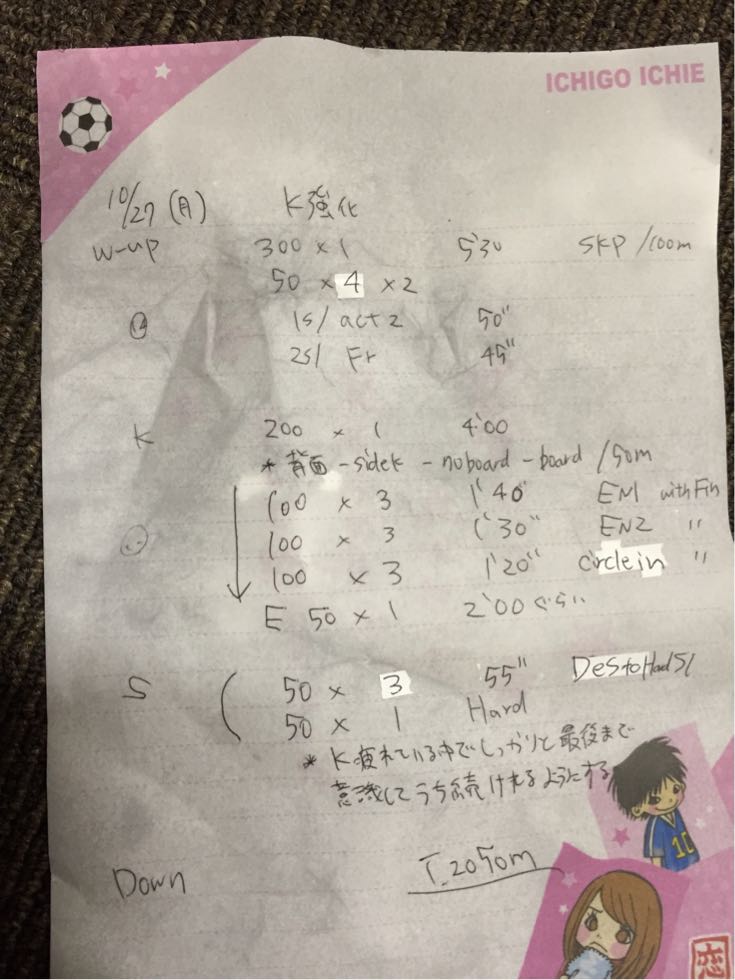 ICHIGO ICHIE
10/27(月) K強化
W-up 300 × 1 5'30 SKP /100m
50 × 4 × 2
1s/ act 2 50"
2s/ Fr 45"
K 200 × 1 4'00
* 背面 - sidek - noboard - board /50m
100 × 3 1'40" EN1 with Fin
100 × 3 1'30" EN2 "
100 × 3 1'20" circle in "
E 50 × 1 2'00ぐらい
S 50 × 3 55" Des to Hard S1
50 × 1 Hard
* K疲れている中でしっかりと最後まで
意識してうち続けれるようにする
10
Down T.2050m
恋